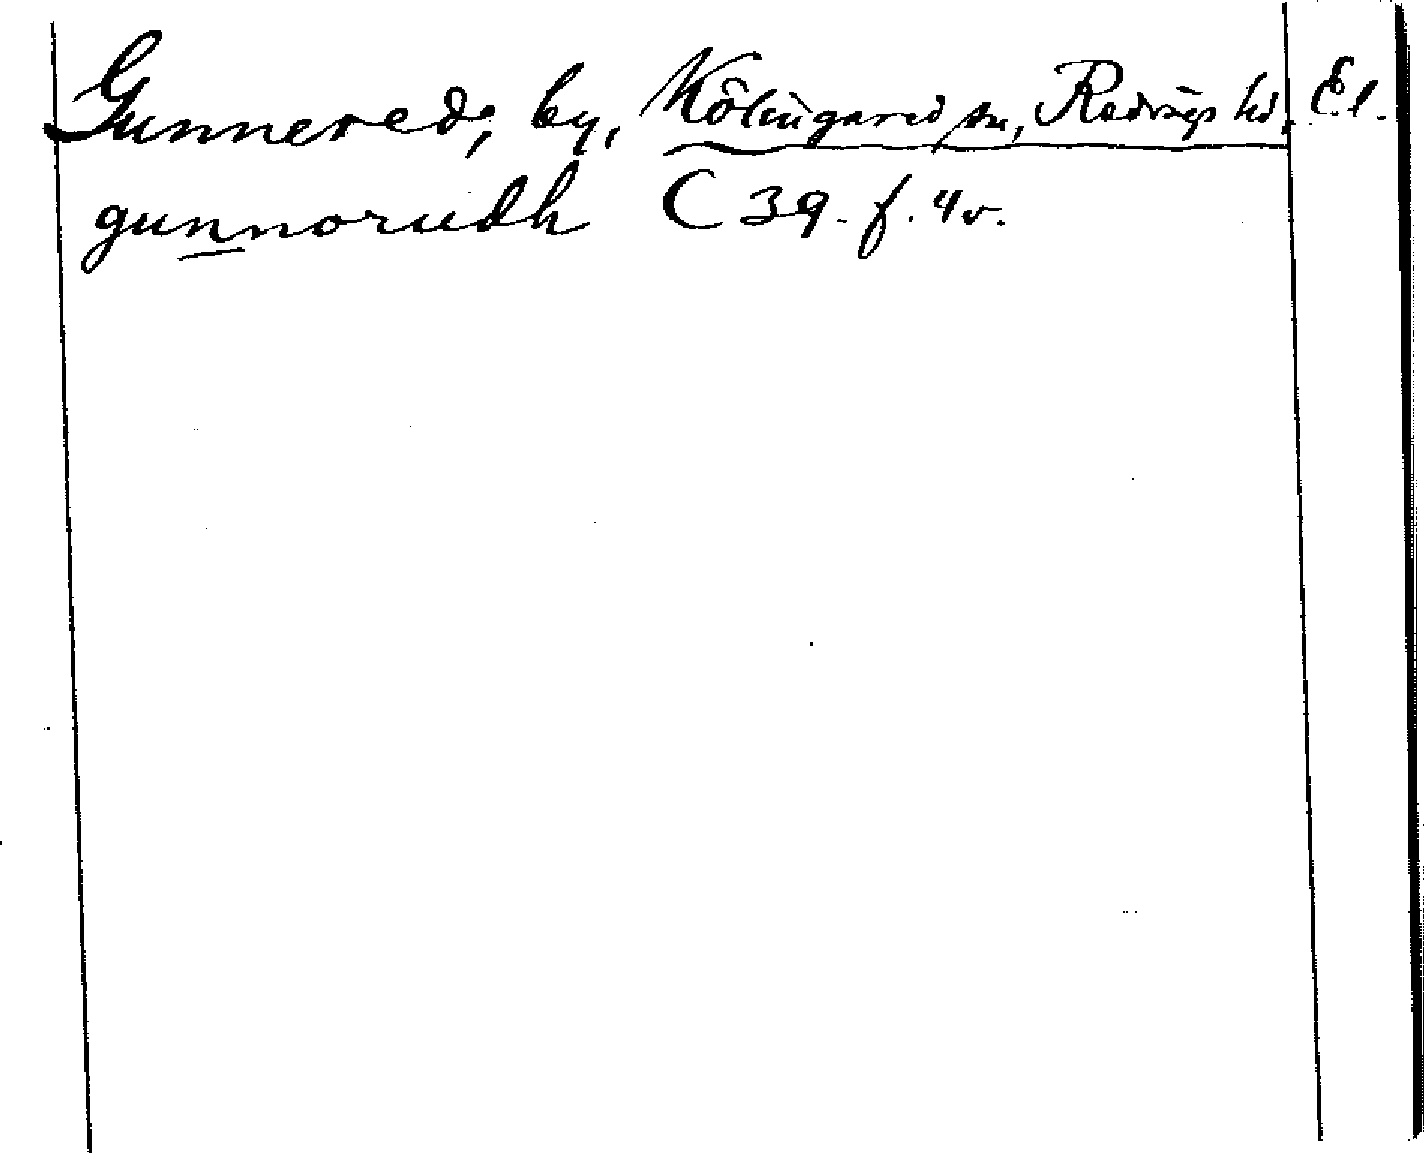 Gunnered, by, Kölingared sn, Redvägs hd. El.
gunnorudh C 39. f. 4v.